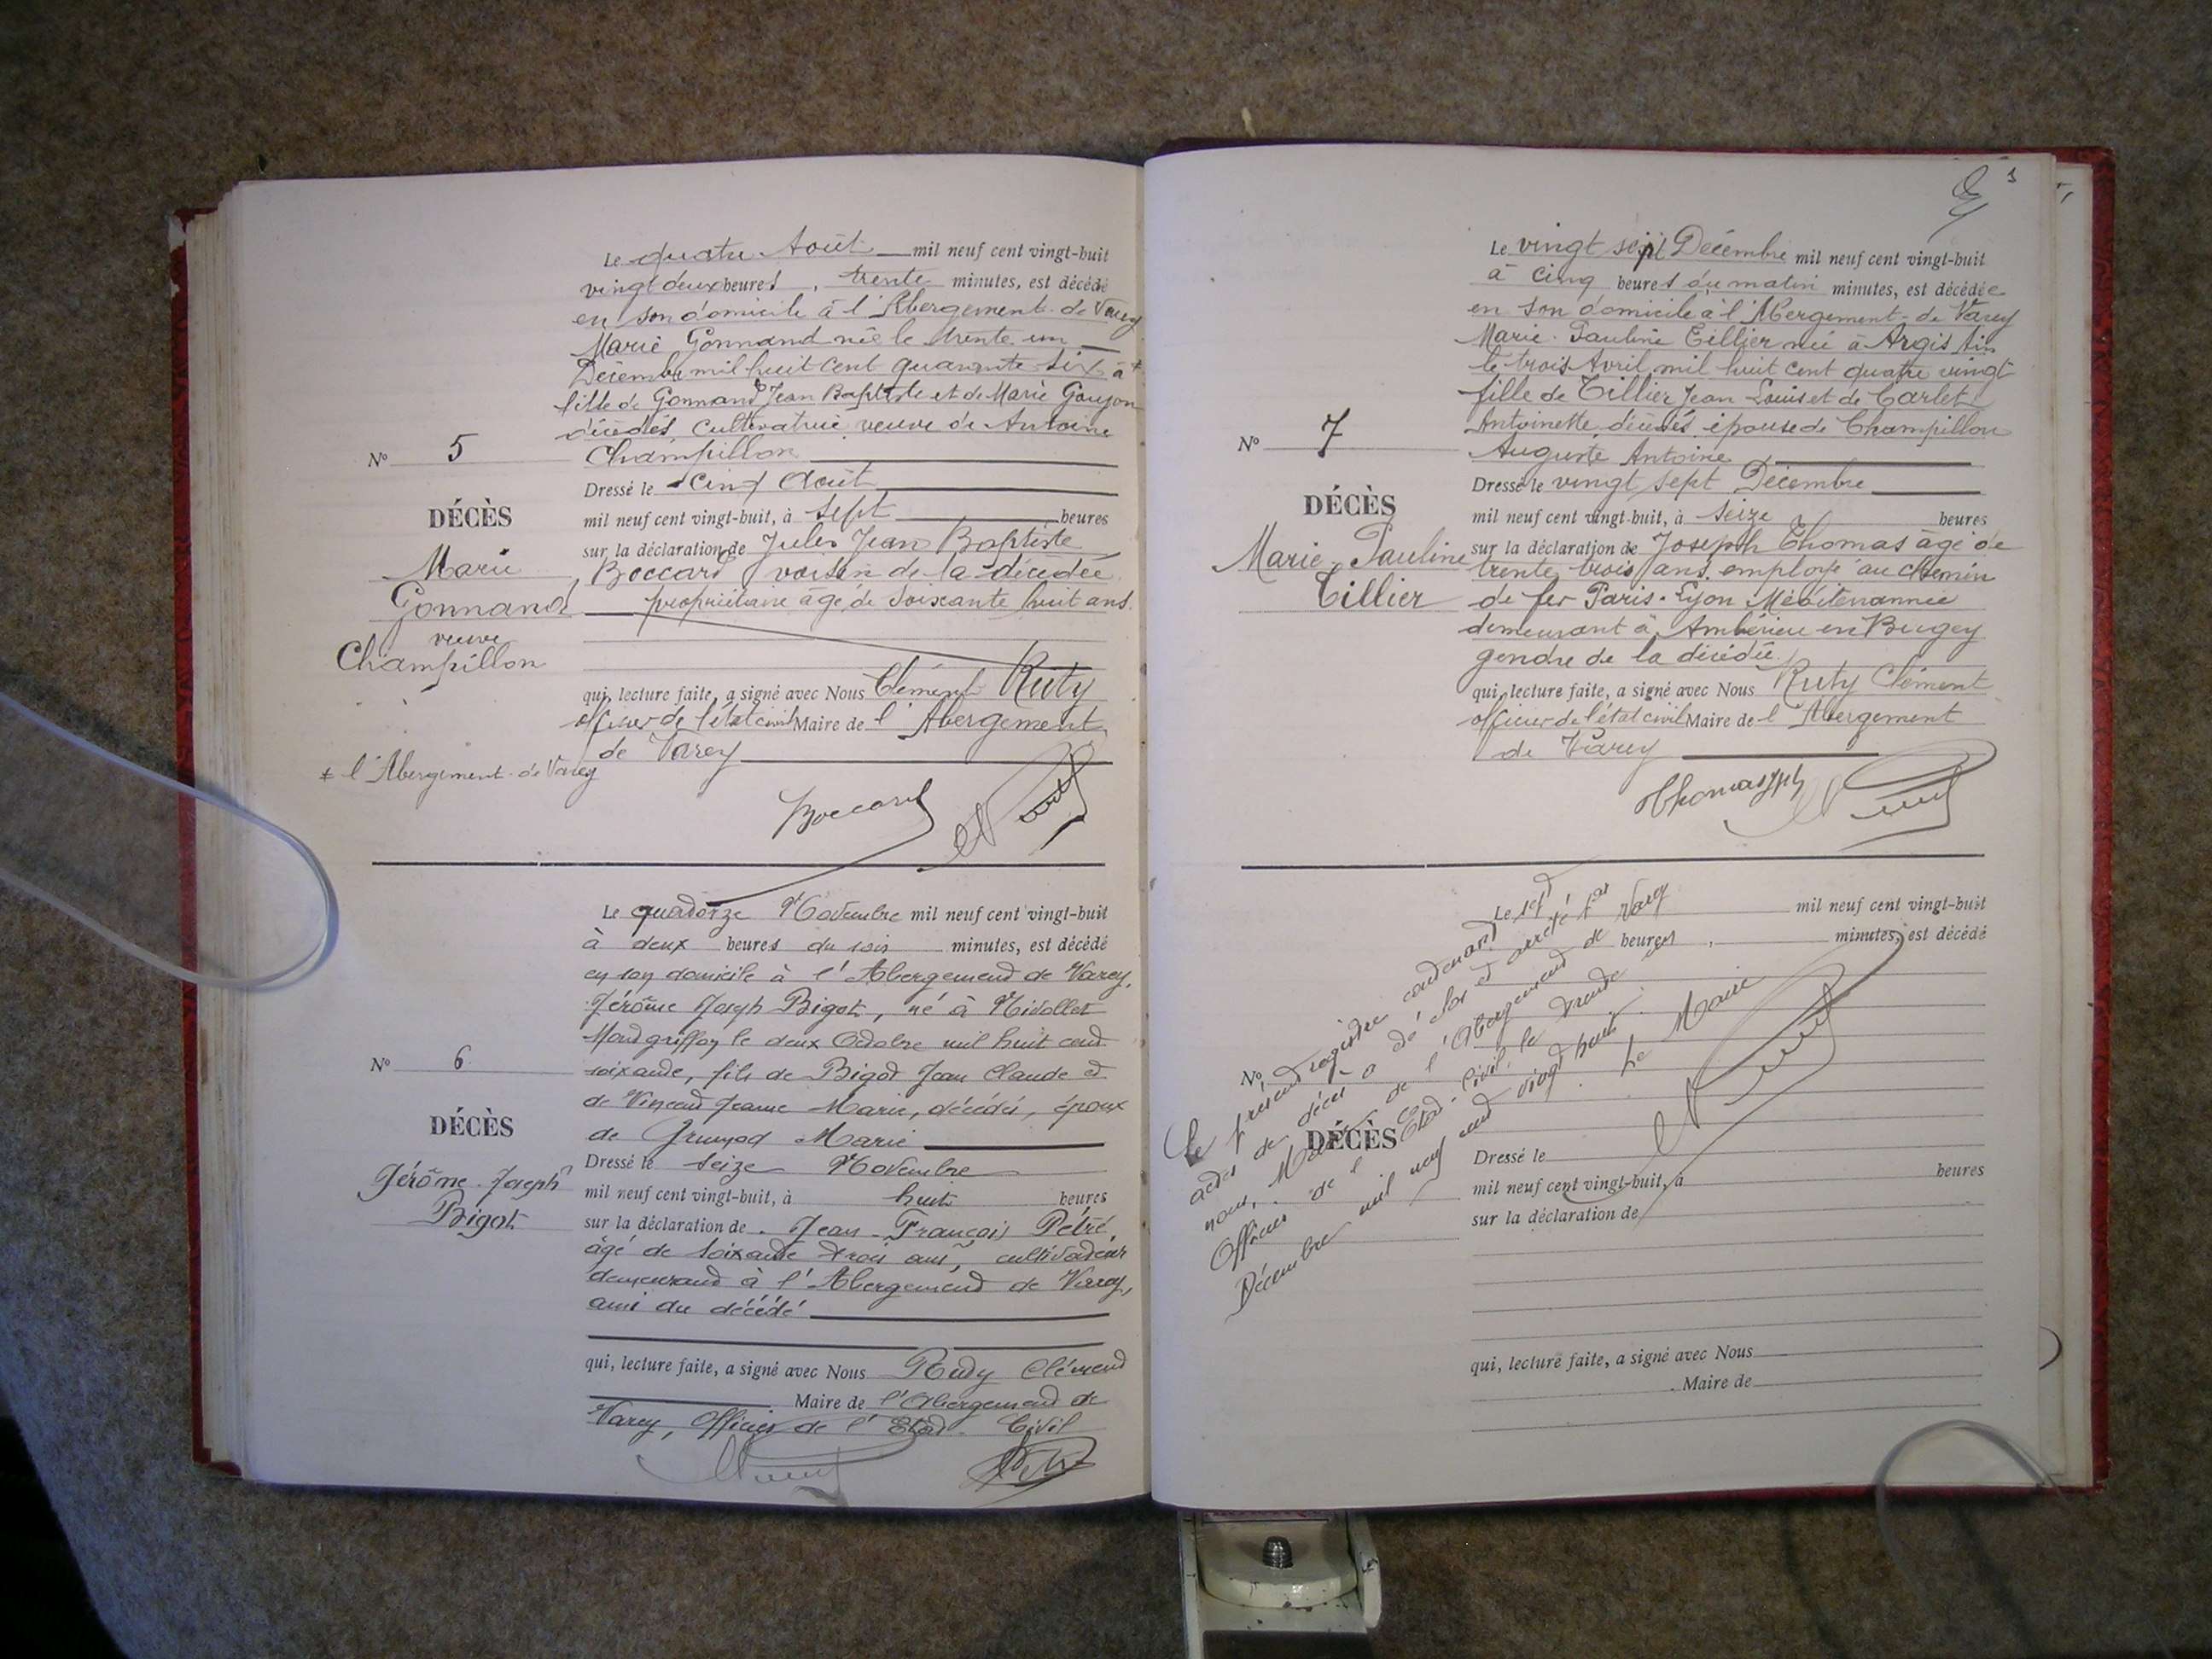 Le quatre Août mil neuf cent vingt-huit
vingt deux heures, trente minutes, est décédé
en son domicile à l'Abergement de Varey
Marie Gonnand née le trente un
Décembre mil huit cent quarante-six à *
fille de Gonnand Jean Baptiste et de Marie Goujon
décédés cultivatrice veuve de Antoine
Champillon
Dressé le cinq Août
mil neuf cent vingt-huit, à sept heures
sur la déclaration de Jules Jean Baptiste
Boccard voisin de la décédée
propriétaire âgé de soixante huit ans.
qui, lecture faite, a signé avec Nous Clément Ruty
officier de l'état civil Maire de l'Abergement
de Varey
Boccard
Nº 5
DÉCÈS
Marie
Gonnand
veuve
Champillon
* l'Abergement de Varey
Le quatorze Novembre mil neuf cent vingt-huit
à deux heures du soir minutes, est décédé
en son domicile à l'Abergement de Varey,
Jérôme Joseph Bigot, né à Nivollet
Montgriffon le deux Octobre mil huit cent
soixante, fils de Bigot Jean Claude et
de Vincent Jeanne Marie, décédés, époux
de Grumod Marie
Dressé le seize Novembre
mil neuf cent vingt-huit, à huit heures
sur la déclaration de Jean-François Pétré,
âgé de soixante trois ans, cultivateur
demeurant à l'Abergement de Varey,
ami du décédé
qui, lecture faite, a signé avec Nous Ruty Clément
Maire de l'Abergement de
Varey, Officier de l'Etat-Civil
Nº 6
DÉCÈS
Jérôme-Joseph
Bigot
Le vingt sept Décembre mil neuf cent vingt-huit
à cinq heures du matin minutes, est décédée
en son domicile à l'Abergement-de Varey
Marie-Pauline Tillier née à Argis Ain
le trois Avril mil huit cent quatre vingt
fille de Tillier Jean Louis et de Carlet
Antoinette décédés épouse de Champillon
Auguste Antoine
Dressé le vingt sept Décembre
mil neuf cent vingt-huit, à seize heures
sur la déclaration de Joseph Thomas âgé de
trente trois ans employé au chemin
de fer Paris-Lyon Méditerrannée
demeurant à Ambérieu en Bugey
gendre de la décédée
qui, lecture faite, a signé avec Nous Ruty Clément
officier de l'état civil Maire de l'Abergement
de Varey
Nº 7
DÉCÈS
Marie-Pauline
Tillier
Le mil neuf cent vingt-huit
heures, minutes, est décédé
Nº
DÉCÈS
Dressé le
mil neuf cent vingt-huit, à heures
sur la déclaration de
qui, lecture faite, a signé avec Nous
Maire de
Le présent registre contenant sept
actes de décès a été clos et arrêté par
nous, Maire de l'Abergement de Varey
Officier de l'Etat-Civil, le trente un
Décembre mil neuf cent vingt huit.
Le Maire